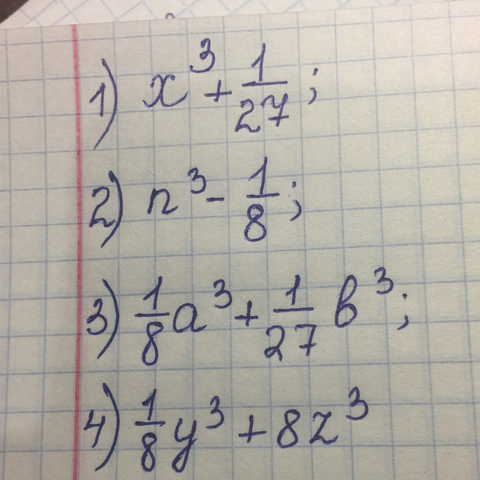 1) x³ + 1/27;
2) n³ - 1/8;
3) 1/8 a³ + 1/27 b³;
4) 1/8 y³ + 8z³